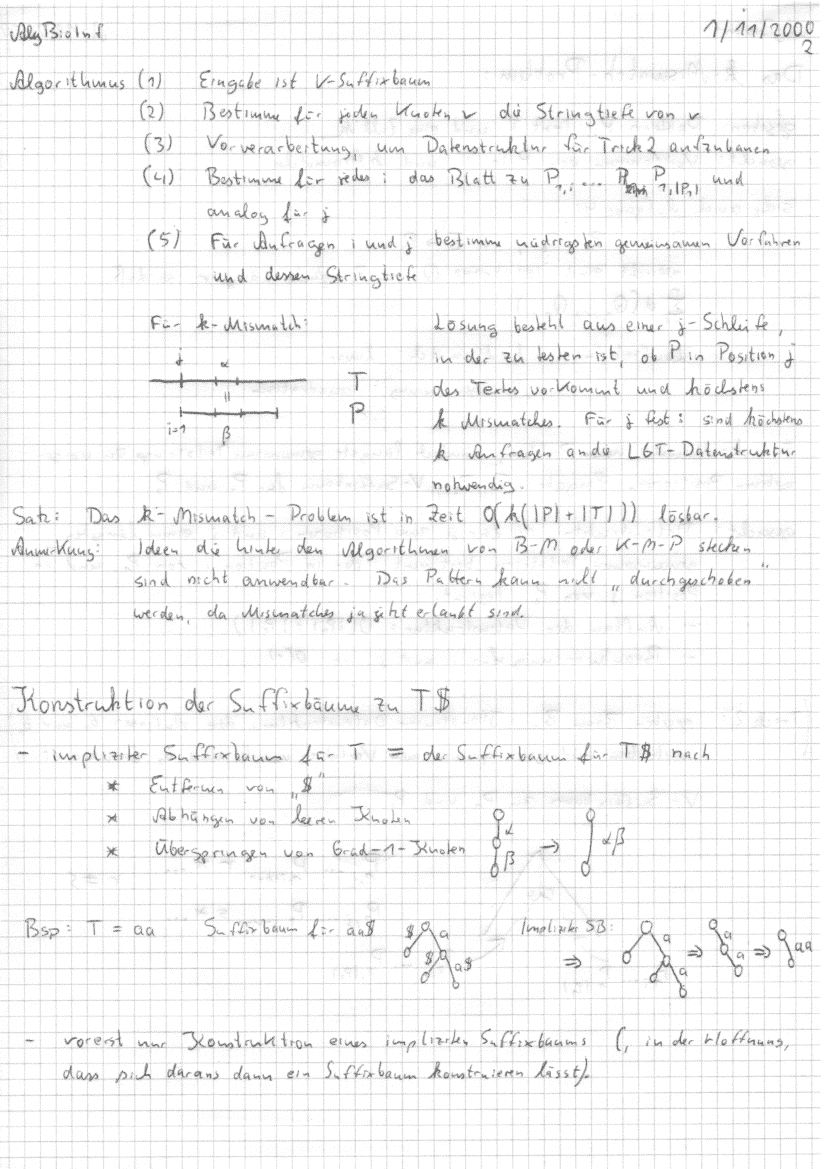 AlgBioInf 1/11/2000
2
Algorithmus (1) Eingabe ist V-Suffixbaum
(2) Bestimme für jeden Knoten v die Stringtiefe von v
(3) Vorverarbeitung, um Datenstruktur für Trick 2 aufzubauen
(4) Bestimme für jedes i das Blatt zu P₁,ᵢ ... P₁,|P₁| und
analog für j
(5) Für Anfragen i und j bestimme niedrigsten gemeinsamen Vorfahren
und dessen Stringtiefe
Für k-Mismatch: Lösung besteht aus einer j-Schleife,
j α in der zu testen ist, ob P in Position j
T des Textes vorkommt und höchstens
||
P
i=1 β k Mismatches. Für j fest: sind höchstens
k Anfragen an die LGT-Datenstruktur
notwendig.
Satz: Das k-Mismatch-Problem ist in Zeit O(k(|P|+|T|)) lösbar.
Anmerkung: Ideen die hinter den Algorithmen von B-M oder K-M-P stecken
sind nicht anwendbar. Das Pattern kann nicht „durchgeschoben"
werden, da Mismatches ja jetzt erlaubt sind.
Konstruktion der Suffixbäume zu T$
- impliziter Suffixbaum für T = der Suffixbaum für T$ nach
* Entfernen von „$"
* Abhängen von leeren Knoten
* Überspringen von Grad-1-Knoten α β → αβ
Bsp: T = aa Suffixbaum für aa$ $ a $ a$ Impliziter SB: ⇒ a a ⇒ a a ⇒ aa
- vorerst nur Konstruktion eines impliziten Suffixbaums (, in der Hoffnung,
dass sich daraus dann ein Suffixbaum konstruieren lässt).